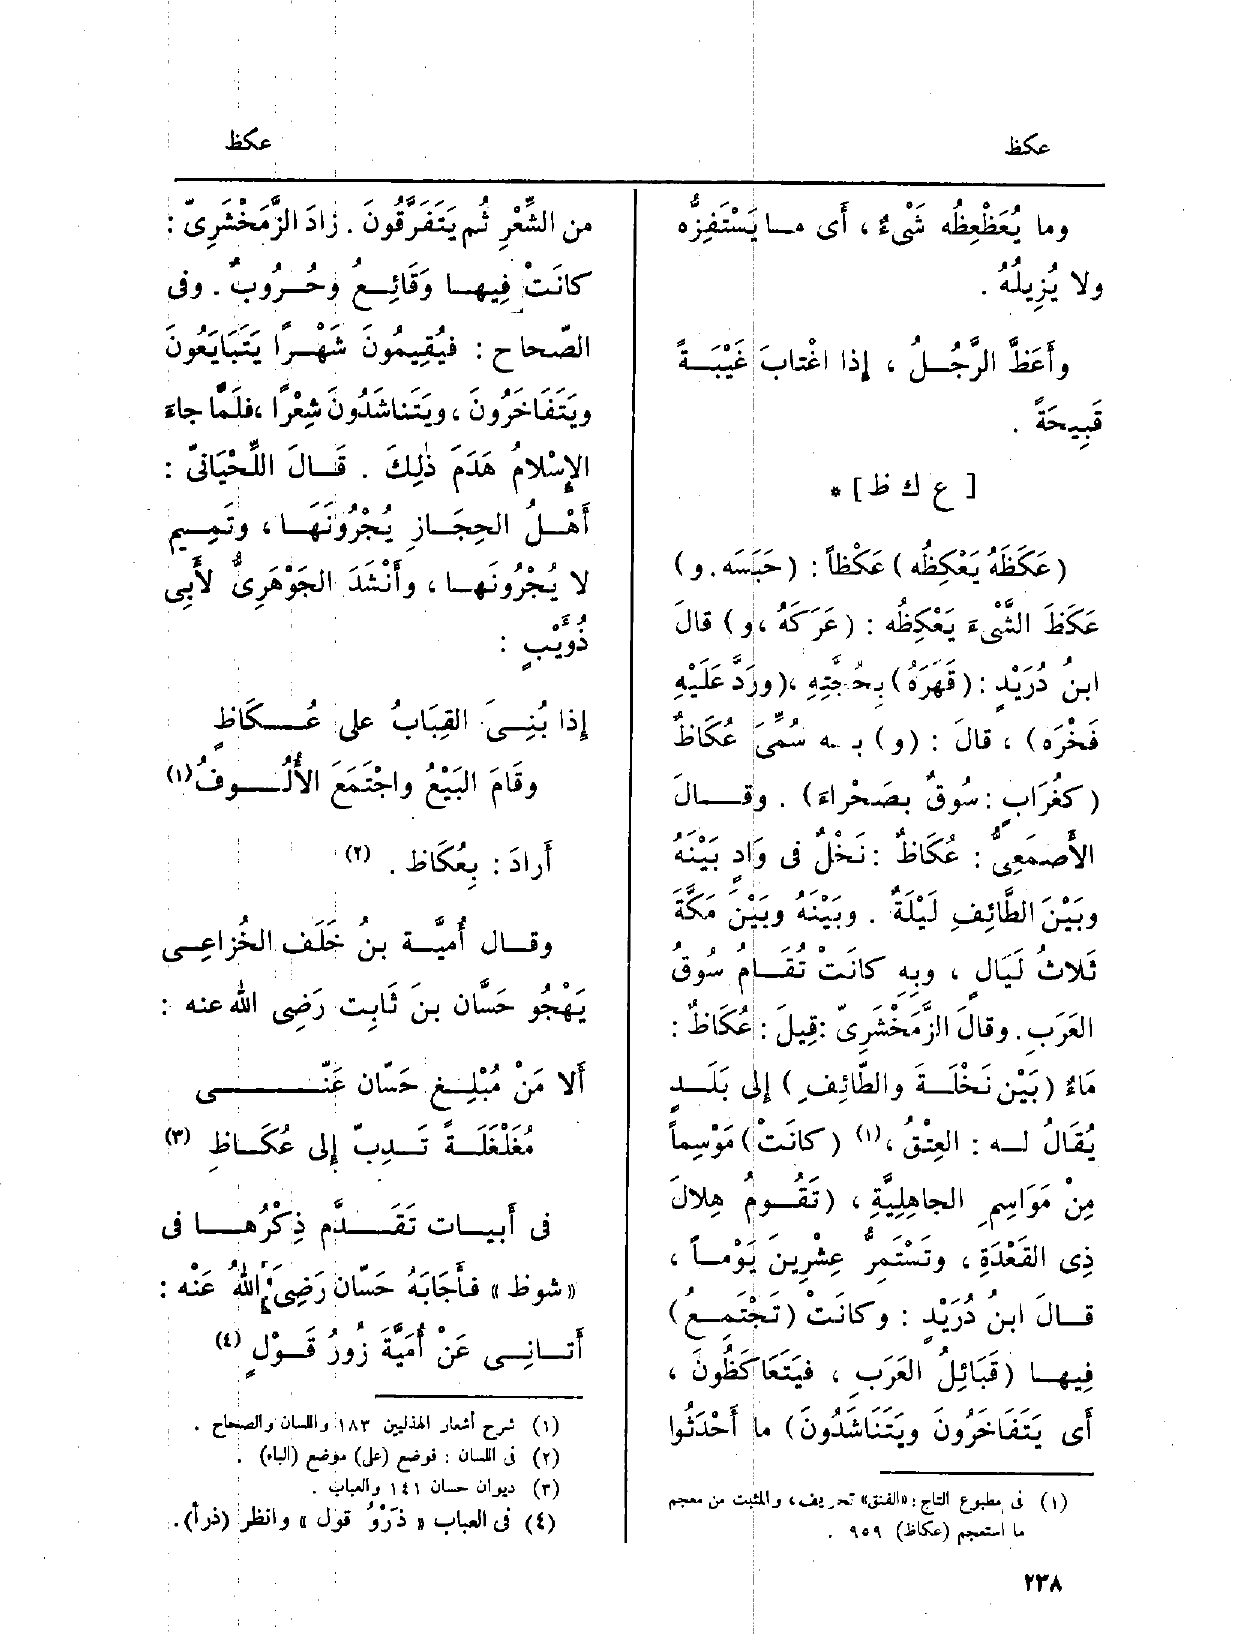 عكظ
عكظ
وما يُعَظْعِظُه شَىْءٌ ، أَى مـا يَسْتَفِزُّه
ولا يُزِيلُهُ .
وأَعَظَّ الرَّجُــلُ ، إِذا اغْتابَ غَيْبَــةً
قَبِيحَةً .
[ ع ك ظ ] *
( عَكَظَهُ يَعْكِظُه ) عَكْظاً : ( حَبَسَه . و )
عَكَظَ الشَّىْءَ يَعْكِظُه : ( عَرَكَهُ ، و ) قالَ
ابنُ دُرَيْدٍ : ( قَهَرَهُ ) بِحُجَّتِهِ ، ( ورَدَّ عَلَيْهِ
فَخْرَه ) ، قالَ : ( و ) بـه سُمِّىَ عُكَاظٌ
( كغُرَابٍ : سُوقٌ بصَحْراءَ ) . وقــالَ
الأَصمَعِىُّ : عُكَاظٌ : نَخْلٌ فى وَادٍ بَيْنَهُ
وبَيْنَ الطَّائِفِ لَيْلَةٌ . وبَيْنَهُ وبَيْنَ مَكَّةَ
ثَلاثُ لَيَالٍ ، وبِهِ كانَتْ تُقَــامُ سُوقُ
العَرَبِ . وقالَ الزَّمَخْشَرِىّ : قِيلَ : عُكَاظٌ :
مَاءٌ ( بَيْن نَخْلَــةَ والطَّائِفِ ) إِلى بَلَــدٍ
يُقَالُ لــه : العِتْقُ ، (١) ( كانَتْ ) مَوْسِماً
مِنْ مَوَاسِمِ الجاهِلِيَّةِ ، ( تَقُــومُ هِلالَ
ذِى القَعْدَةِ ، وتَسْتَمِرُّ عِشْرِين يَوْمــاً ،
قــالَ ابنُ دُرَيْدٍ : وكانَتْ ( تَجْتَمِــعُ )
فِيهــا ( قَبَائِلُ العَرَبِ ، فيَتَعَاكَظُونَ ،
أَى يَتَفَاخَرُونَ ويَتَنَاشَدُونَ ) ما أَحْدَثُوا
(١) فى مطبوع التاج : «الفنق» تحريف ، والمثبت من معجم
ما استعجم (عكاظ) ٩٥٩ .
من الشِّعْرِ ثُم يَتَفَرَّقُونَ . زادَ الزَّمَخْشَرِىّ :
كانَتْ فِيهــا وَقَائِــعُ وحُــرُوبٌ . وفى
الصّحاح : فيُقِيمُونَ شَهْــرًا يَتَبَايَعُونَ
ويَتَفَاخَرُونَ ، ويَتَناشَدُونَ شِعْرًا ، فلَمَّا جاءَ
الإِسْلامُ هَدَمَ ذٰلِكَ . قَــالَ اللِّحْيَانىّ :
أَهْــلُ الحِجَــازِ يُجْرُونَهَــا ، وتَمِــيم
لا يُجْرُونهــا ، وأَنْشَدَ الجَوْهَرِىُّ لأَبِى
ذُؤَيْبٍ :
إِذا بُنِــىَ القِبَابُ على عُــكاظٍ
وقَامَ البَيْعُ واجْتَمَعَ الأُلُــوفُ (١)
أَرادَ : بِعُكَاظ . (٢)
وقــال أُمَيَّــة بنُ خَلَف الخُزاعِــى
يَهْجُو حَسَّان بنَ ثَابِت رَضِى اللّه عنه :
أَلا مَنْ مُبْلِــغ حَسّان عَنّــى
مُغَلْغَلَــةً تَــدِبّ إِلى عُكَــاظِ (٣)
فى أَبيــات تَقَــدَّم ذِكْرُهــا فى
« شوظ » فأَجَابَهُ حَسّان رَضِىَ اللهُ عَنْه :
أَتــانِــى عَنْ أُمَيَّةَ زُورُ قَــوْلٍ (٤)
(١) شرح أشعار الهذليين ١٨٣ واللسان والصحاح .
(٢) فى اللسان : فوضع (على) موضع (الباء) .
(٣) ديوان حسان ١٤١ والعباب .
(٤) فى العباب « ذَرْوُ قول » وانظر (ذرأ) .
٢٣٨